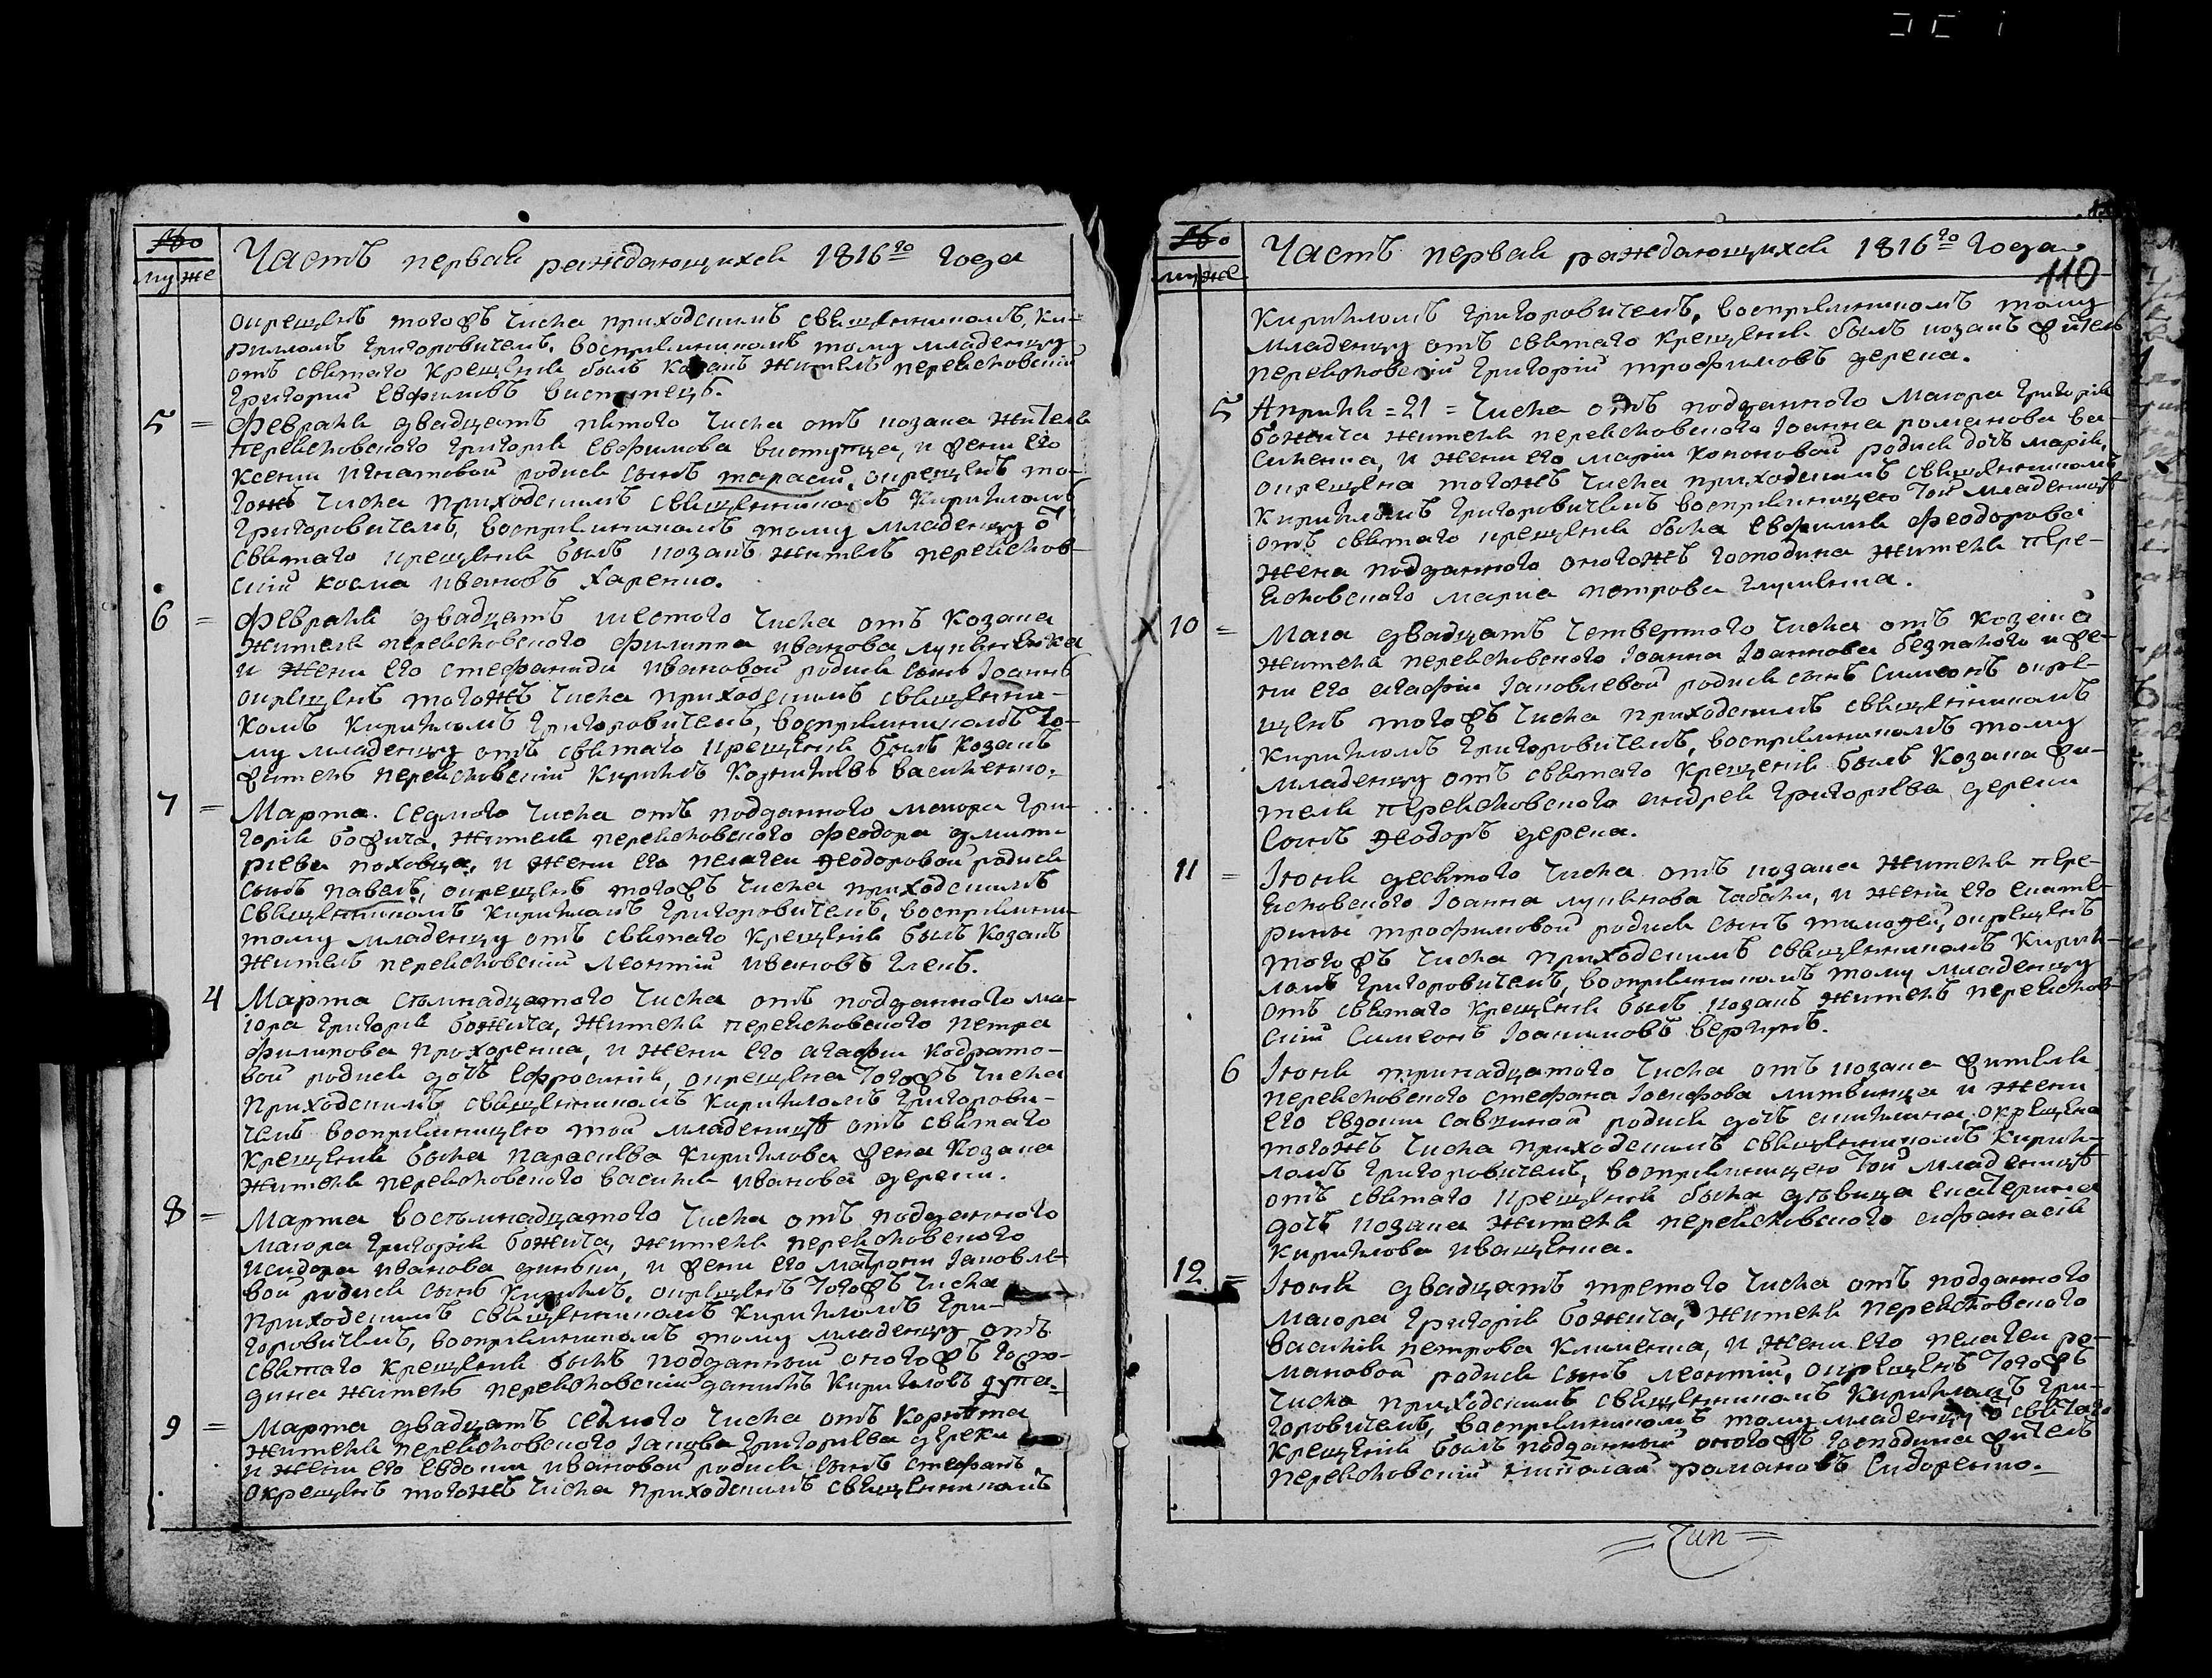 №
му же
Часть первая раждающихся 1816го года
окрещенъ тогожъ числа приходскимъ священникомъ, Ки-
рилломъ Григоровичемъ, восприемникомъ тому младенцу
отъ святаго крещения былъ козакъ житель переясловский
Григорий Евфимовъ
5 = Февраля двадцать пятого числа отъ козака жителя
переясловского Григория Евфимова и жени его
Ксении Игнатовой родися сынъ тарасий, окрещенъ то-
гожъ числа приходскимъ священникомъ Кириломъ
Григоровичемъ, восприемникомъ тому младенцу о̄
святаго крещения былъ козакъ житель переяслов-
ский косма ивановъ Харенко.
6 = Февраля двадцать шестого числа отъ козака
жителя переясловского филиппа иванова
и жени его стефаниди ивановой родися сынъ Іоаннъ
окрещенъ тогожъ числа приходскимъ священни-
комъ Кириломъ Григоровичемъ, восприемникомъ то-
му младенцу отъ святаго крещения былъ козакъ
житель переясловский Кирилъ василенко.
7 = Марта седмого числа отъ подданного маиора Гри-
гория божича, жителя переясловского Феодора дмит-
риева и жени его пелагеи Ѳеодоровой родися
сынъ павелъ, окрещенъ тогожъ числа приходскимъ
священникомъ Кириломъ Григоровичемъ, восприемник
тому младенцу отъ святаго крещения былъ козакъ
житель переясловский леонтий ивановъ
4 Марта сѣмнадцатого числа отъ подданного ма-
иора Григория божича, жителя переясловского петра
филипова прохоренка, и жени его агафии кодрато-
вой родися дочь Ефросиния, окрещена тогожъ числа
приходскимъ священникомъ Кириломъ Григорови-
чемъ восприемницею той младеницѣ отъ святаго
крещения была параскева Кирилова жена козака
жителя переясловского василия иванова дереки.
8 = Марта восѣмнадцатого числа отъ подданного
маиора Григория божича, жителя переясловского
исидора иванова и жени его матрони Іаковле-
вой родися сынъ Кирилъ, окрещенъ тогожъ числа
приходскимъ священникомъ Кириломъ Гри-
горовичемъ, восприемникомъ тому младенцу отъ
святаго крещения былъ подданный оногожъ госпо-
дина житель переясловский данилъ Кириловъ
9 = Марта двадцать седмого числа отъ
жителя переясловского Іакова Григориева дереки
и жени его евдокии ивановой родися сынъ стефанъ
окрещенъ тогожъ числа приходскимъ священникомъ
№
му же
Часть первая раждающихся 1816го года
110
Кириломъ Григоровичемъ, восприемникомъ тому
младенцу отъ святаго крещения былъ козакъ житель
переясловский Григорий трофимовъ дерека.
5 Априля =21= числа отъ подданного Маиора Григория
божича жителя переясловского Іоанна романова ва-
силенка, и жени его марии кононовой родися дочь мария,
окрещена тогожъ числа приходскимъ священникомъ
Кириломъ Григоровичемъ восприемницею той младеницѣ
отъ святаго крещения была евфимия Феодорова
жена подданного оногожъ господина жителя пере-
ясловского марка петрова
X 10 = Маиа двадцать четвертого числа отъ козака
жителя переясловского Іоанна Іоаннова безпалого и же-
ни его агафии Іаковлевой родися сынъ Симеонъ окре-
щенъ тогожъ числа приходскимъ священникомъ
Кириломъ Григоровичемъ, восприемникомъ тому
младенцу отъ святаго крещения былъ козака жи-
теля переясловского андрея Григориева дереки
сынъ Ѳеодоръ дерека.
11 = Іюня десятого числа отъ козака жителя пере-
ясловского Іоанна лукянова и жени его екате-
рини трофимовой родися сынъ тимофей, окрещенъ
тогожъ числа приходскимъ священникомъ Кири-
ломъ Григоровичемъ, восприемникомъ тому младенцу
отъ святаго крещения былъ козакъ житель переяслов-
ский Симеонъ Іоанновъ вергунъ.
6 Іюня тринадцатого числа отъ козака жителя
переясловского стефана Іосифова литвинца и жени
его евдокии савиной родися дочь акилина, окрещена
тогожъ числа приходскимъ священникомъ Кири-
ломъ Григоровичемъ, восприемницею той младеницѣ
отъ святаго крещения была дѣвица екатерина
дочь козака жителя переясловского афанасия
Кирилова иващенка.
12 = Іюня двадцать третого числа отъ подданного
маиора Григория божича, жителя переясловского
василия петрова клименка, и жени его пелагеи ро-
мановой родися сынъ леонтий, окрещенъ тогожъ
числа приходскимъ священникомъ Кириломъ Гри-
горовичемъ, восприемникомъ тому младенцу о̄ святаго
крещения былъ подданный оногожъ господина житель
переясловский николай романовъ Сидоренко.